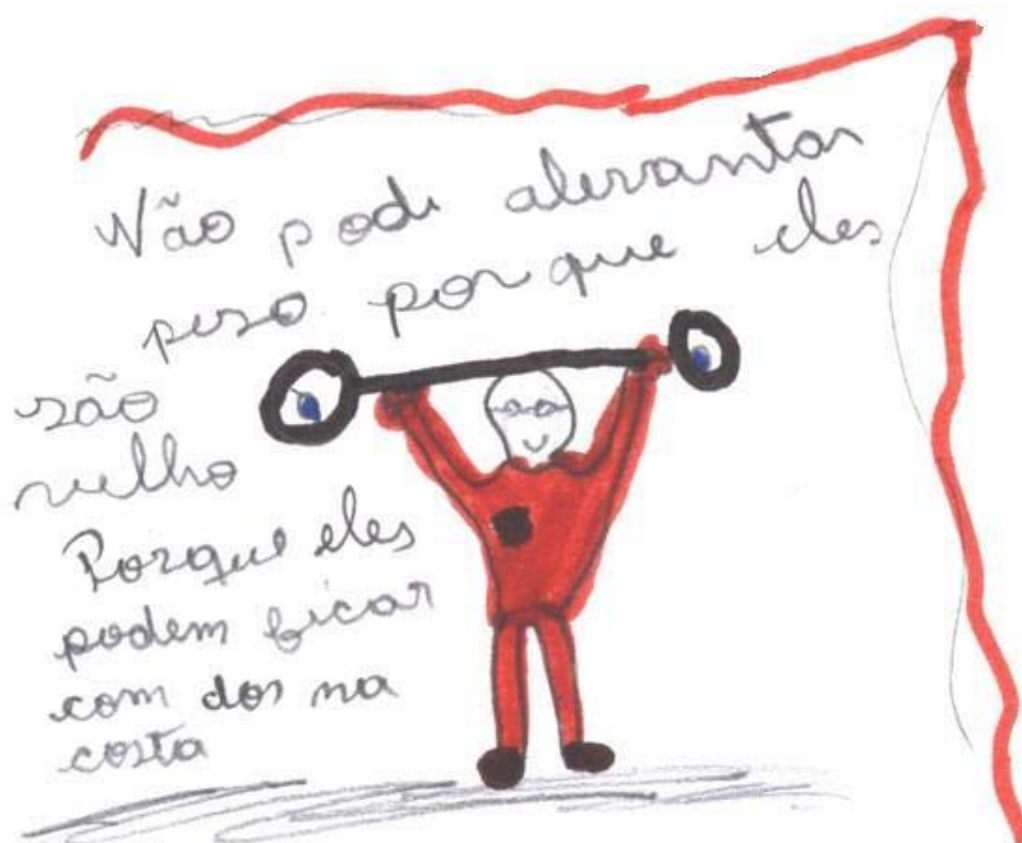 Não pode alevantar
peso por que eles
são
velho
Porque eles
podem ficar
com dor na
costa